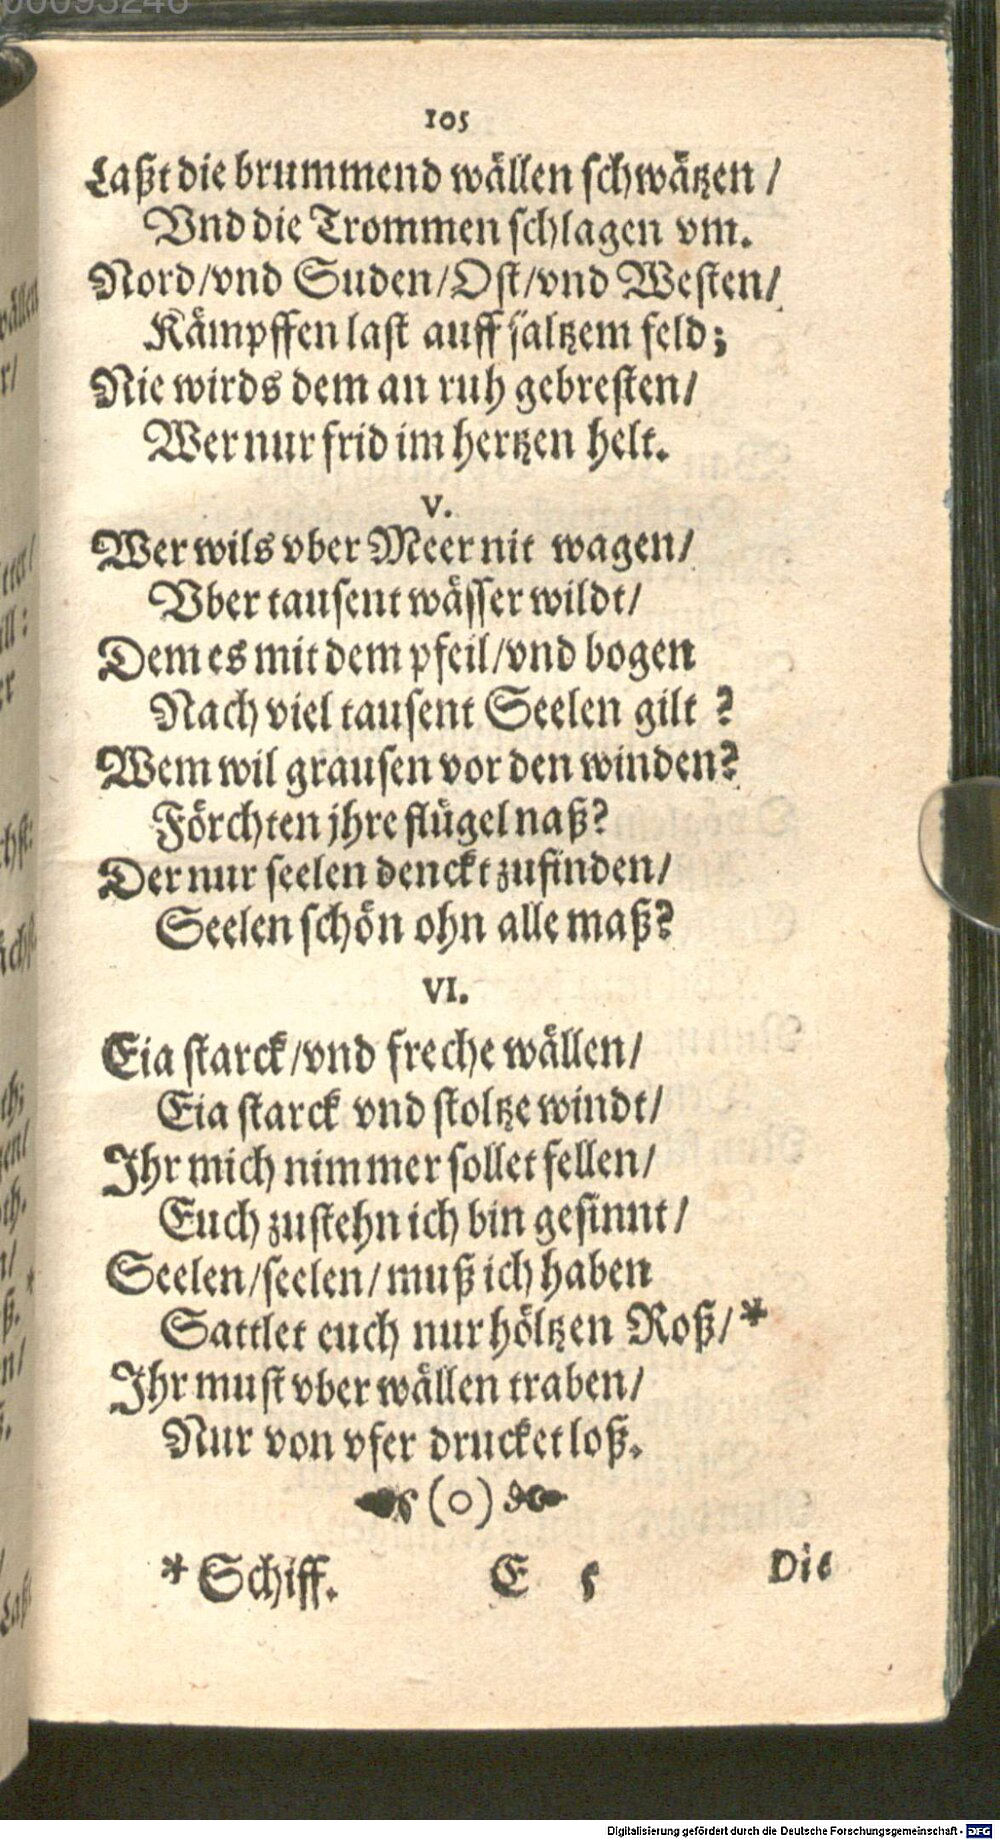 105
Laßt die brummend wällen schwätzen /
Vnd die Trommen schlagen vm.
Nord/vnd Suden/Ost/vnd Westen/
Kämpffen last auff saltzem feld;
Nie wirds dem an ruh gebresten/
Wer nur frid im hertzen helt.
V.
Wer wils vber Meer nit wagen/
Vber tausent wässer wildt/
Dem es mit dem pfeil/vnd bogen
Nach viel tausent Seelen gilt ?
Wem wil grausen vor den winden?
Förchten jhre flügel naß?
Der nur seelen denckt zufinden/
Seelen schön ohn alle maß?
VI.
Eia starck/vnd freche wällen/
Eia starck vnd stoltze windt/
Ihr mich nimmer sollet fellen/
Euch zustehn ich bin gesinnt/
Seelen/seelen/muß ich haben
Sattlet euch nur höltzen Roß/*
Ihr must vber wällen traben/
Nur von vfer drucket loß.
(o)
* Schiff. E 5 Die
Digitalisierung gefördert durch die Deutsche Forschungsgemeinschaft - DFG